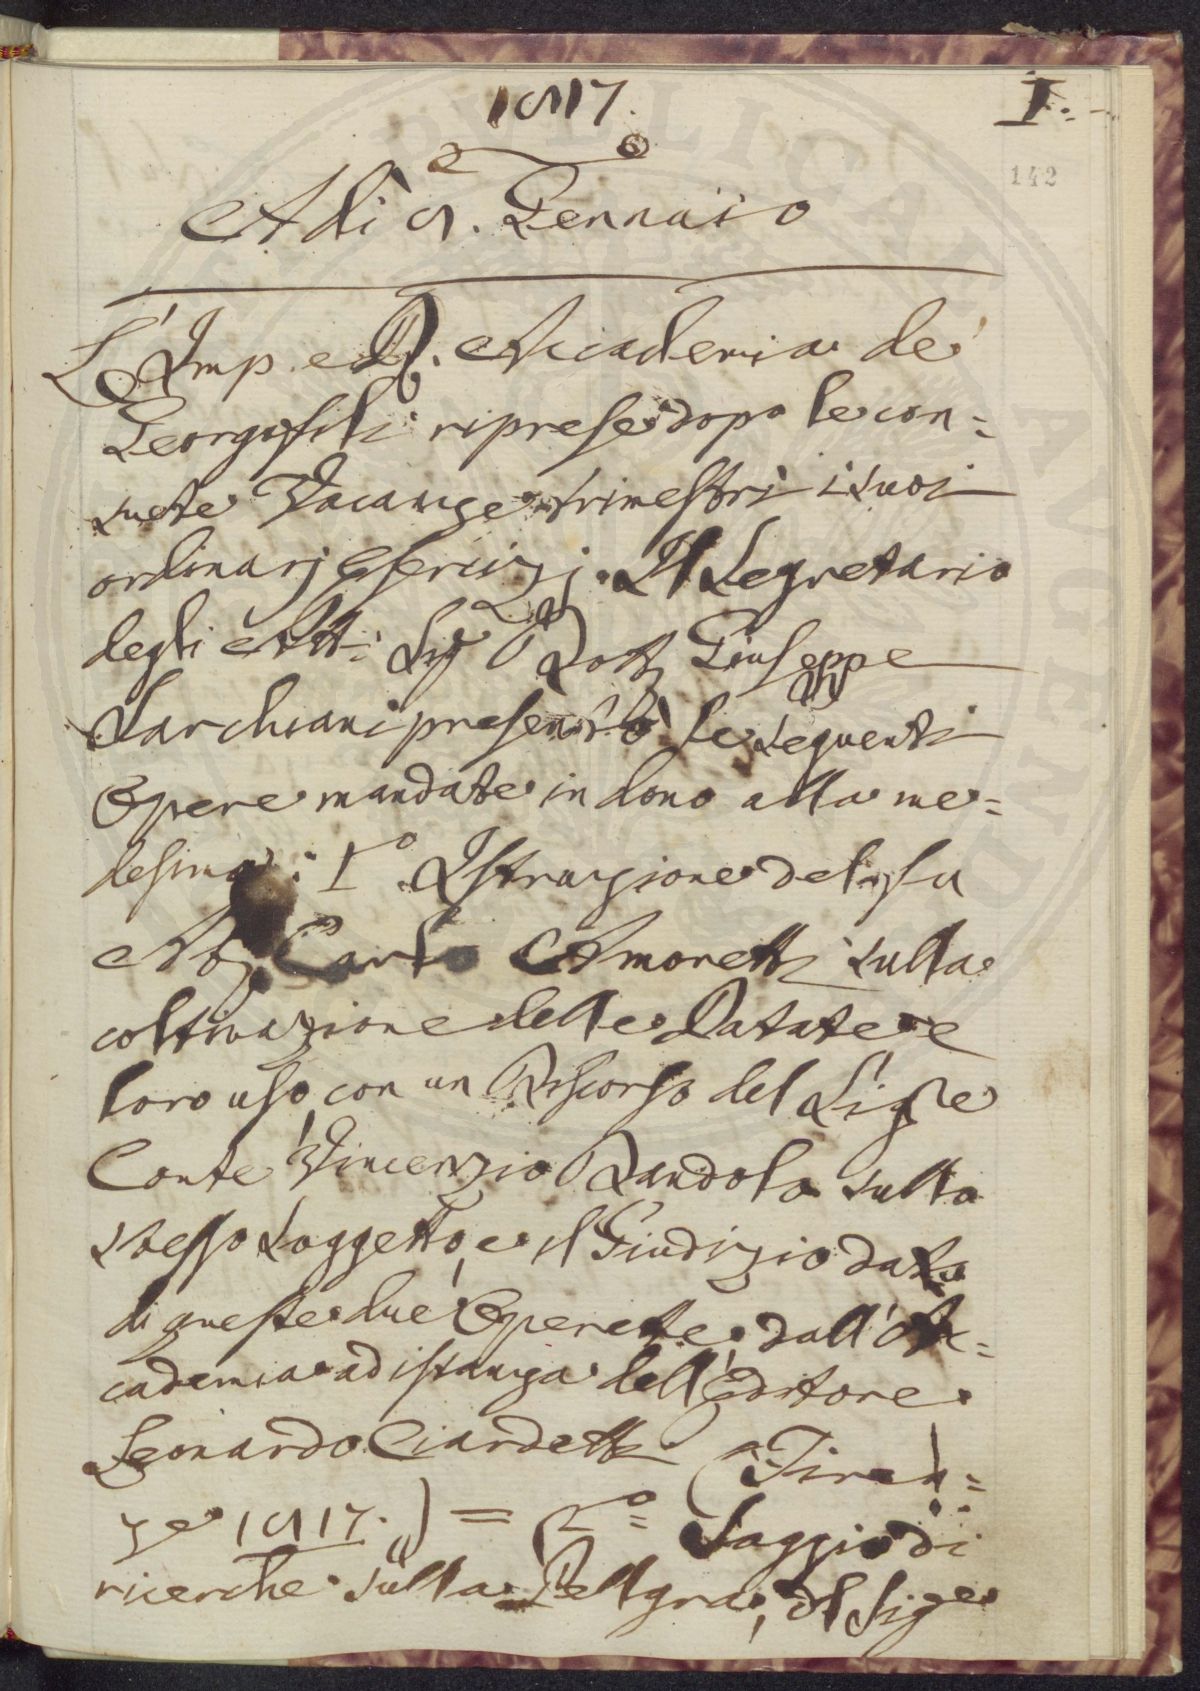 1817.
I.
142
Adì 8. Gennaio
L'Imp. e R. Accademia de'
Georgofili riprese dopo le con=
suete Vacanze trimestri i suoi
ordinarj Esercizj. Il Segretario
degli Atti Sig.re Dott. Giuseppe
Sarchiani presentò le seguenti
Opere mandate in dono alla me=
desima: 1.o Istruzione del fu
Ab. Carlo Amoretti sulla
coltivazione delle Patate e
loro uso con un Discorso del Sig.re
Conte Vincenzio Dandolo sullo
stesso soggetto, e il Giudizio dato
di queste due Operette dall'Ac=
cademia ad istanza dell'Editore
Leonardo Ciardetti (Firen=
ze 1817.) = 2.o = Saggio di
ricerche sulla Pellgra, del Sig.re